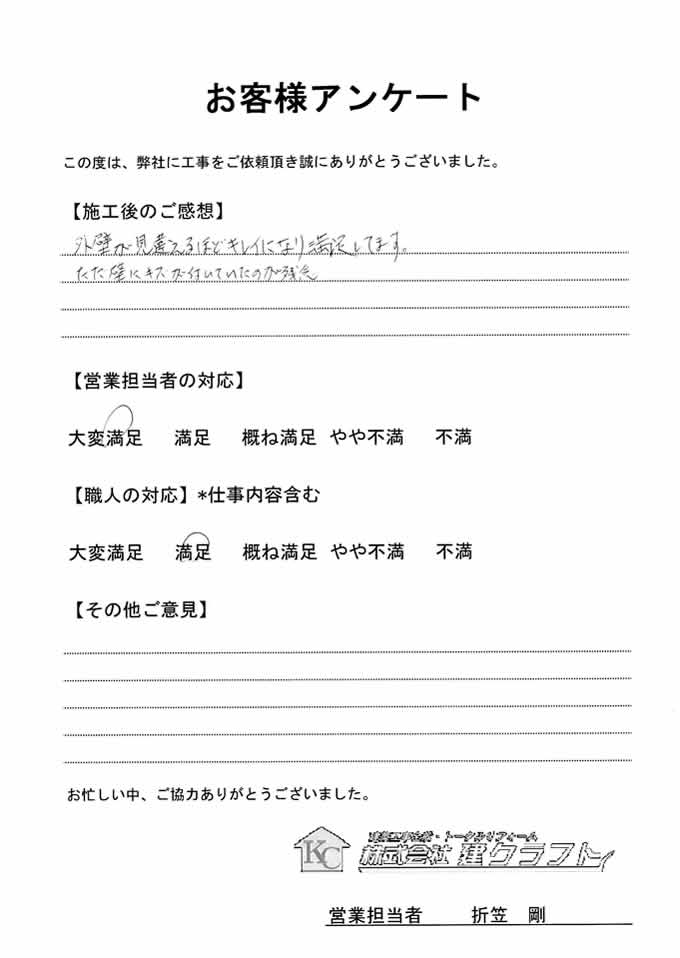 お客様アンケート
この度は、弊社に工事をご依頼頂き誠にありがとうございました。
【施工後のご感想】
外壁が見違えるほどキレイになり満足してます。
ただ壁にキズが付いていたのが残念
【営業担当者の対応】
大変満足 満足 概ね満足 やや不満 不満
【職人の対応】*仕事内容含む
大変満足 満足 概ね満足 やや不満 不満
【その他ご意見】
お忙しい中、ご協力ありがとうございました。
KC
・トータルリフォーム
株式会社 建クラフト
営業担当者 折笠 剛